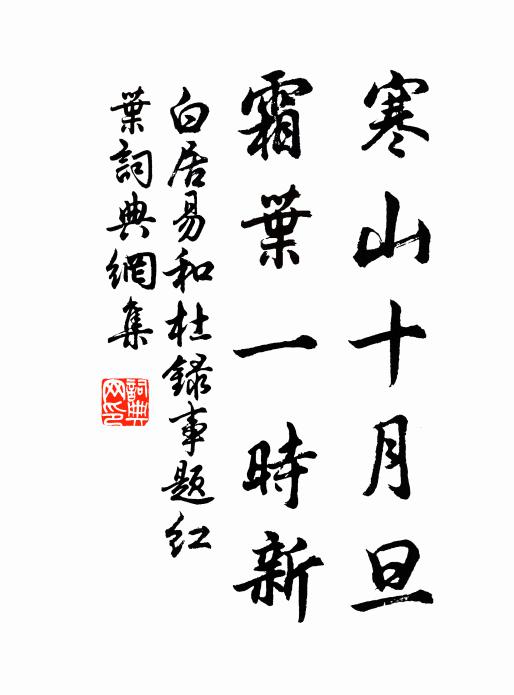 寒山十月旦
霜葉一時新
白居易和杜録事題红
葉詞典網集
詞典
网印